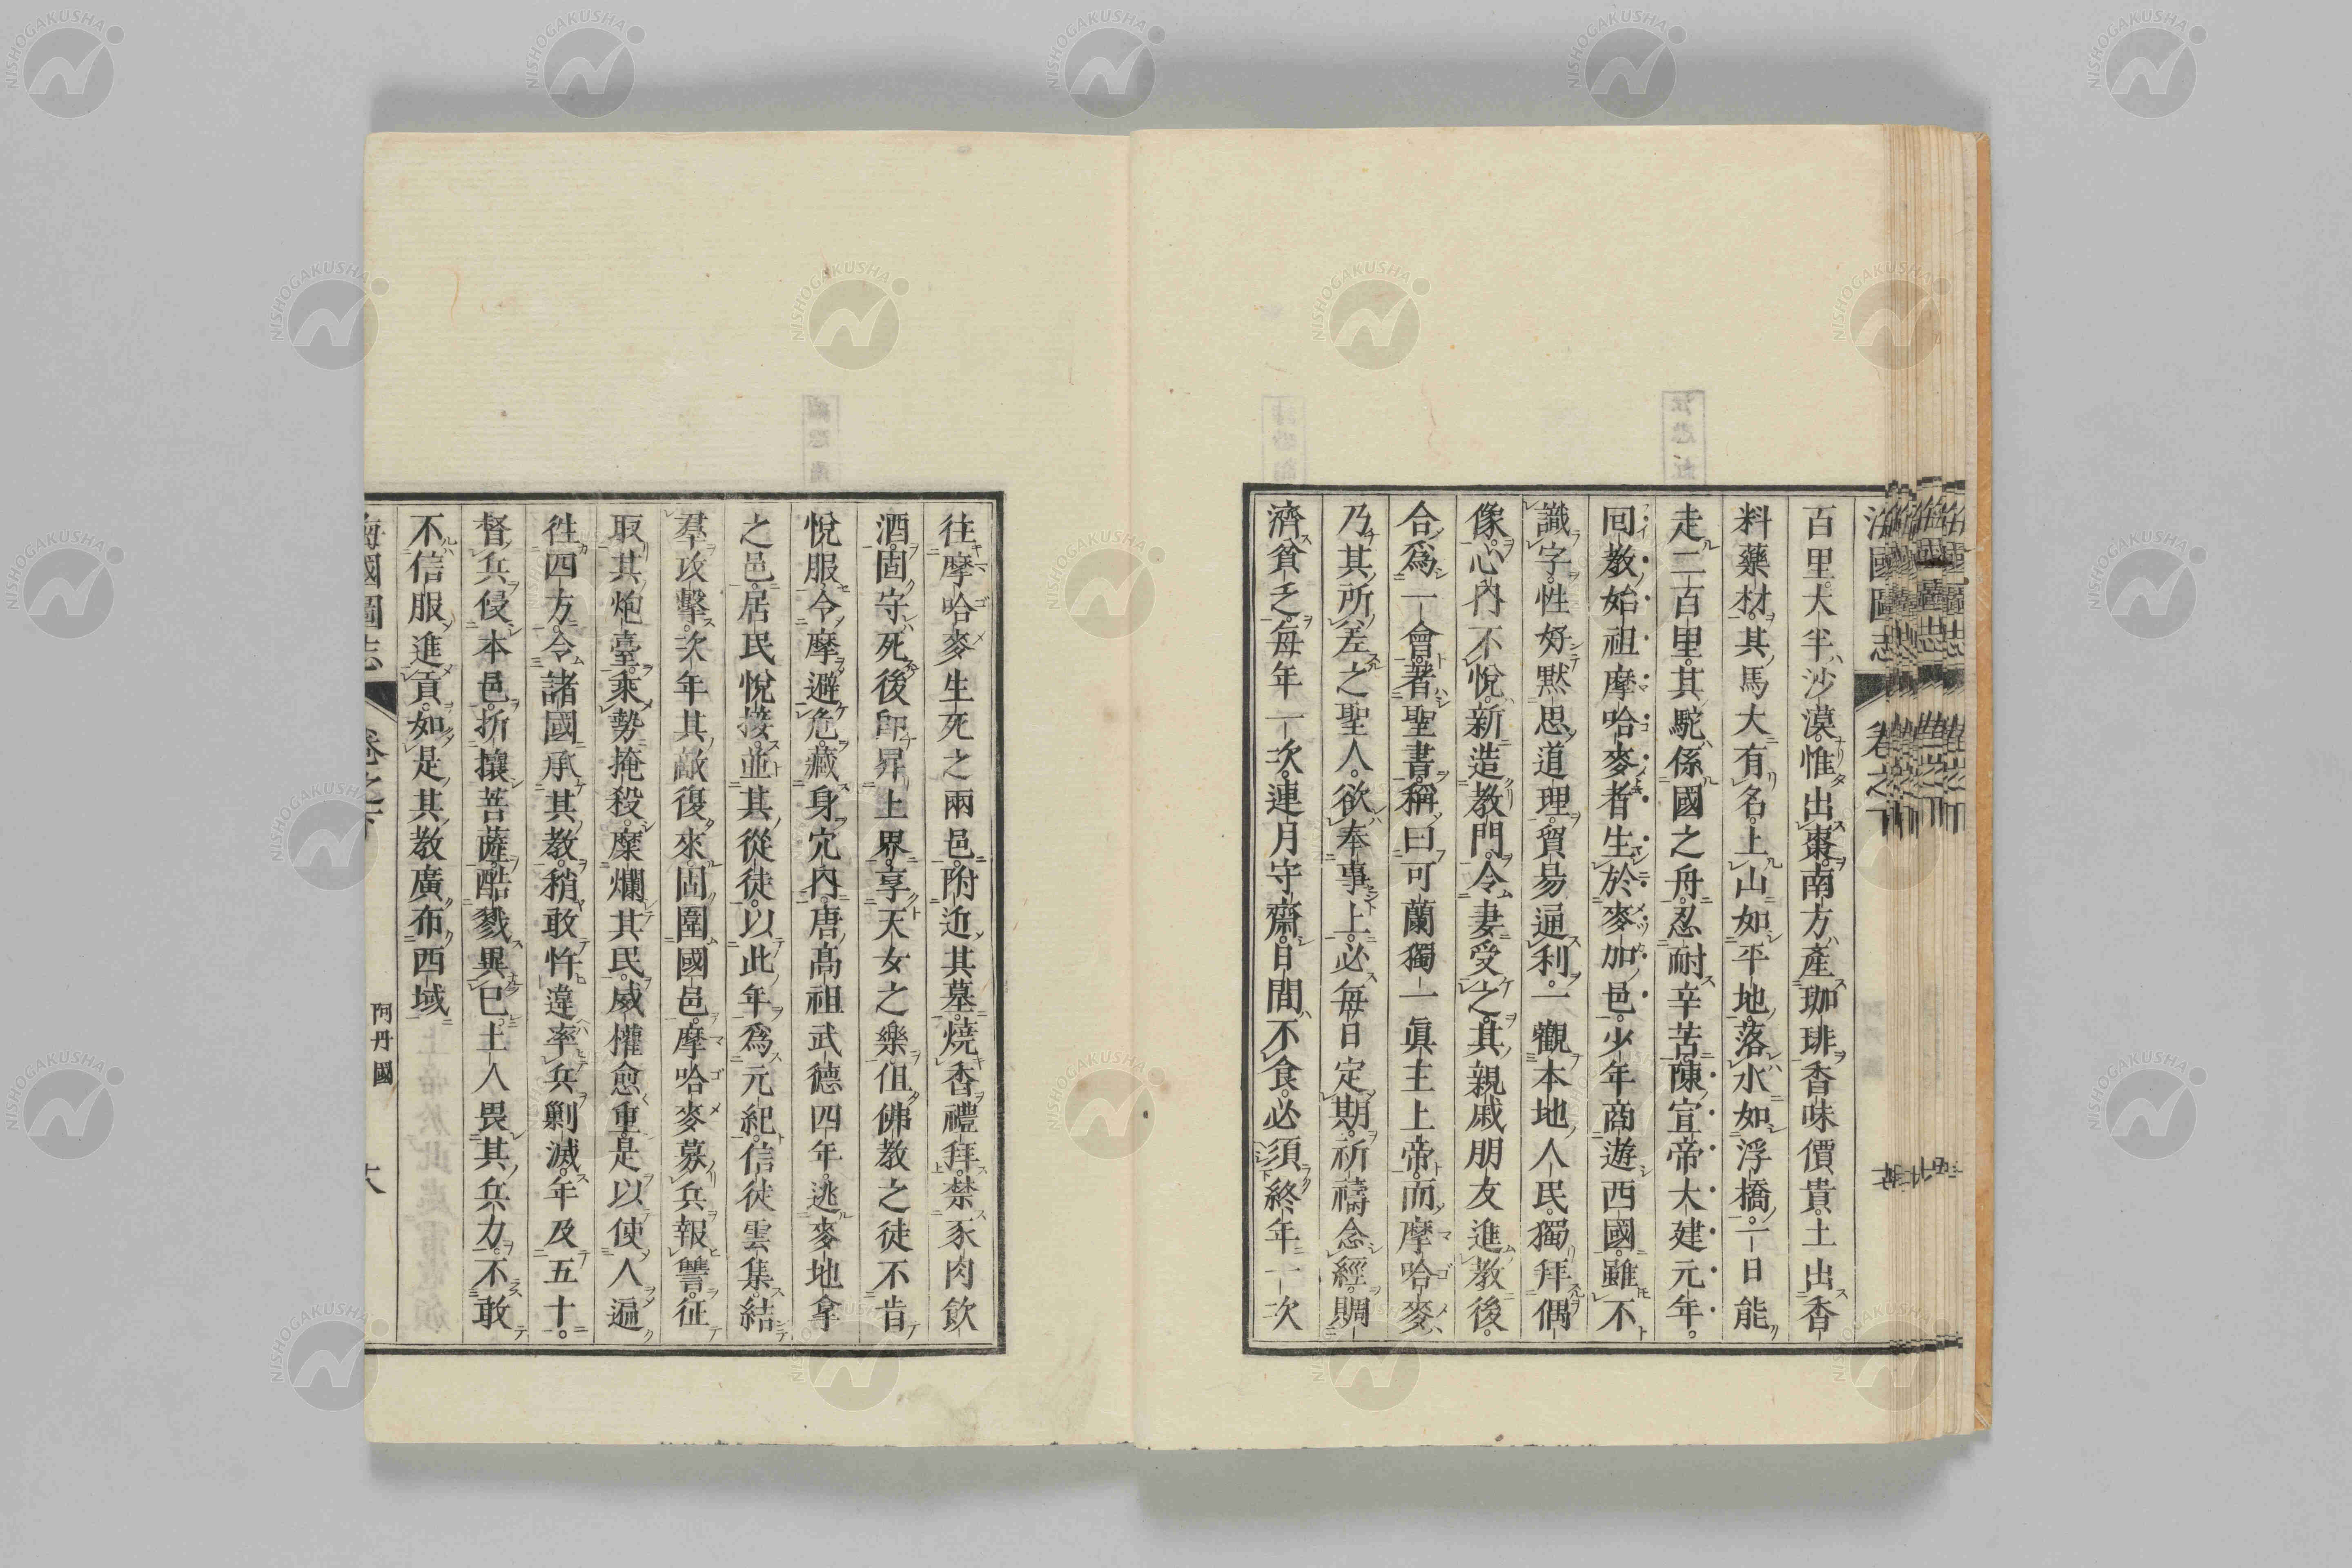 百里大半沙漠。惟出棗。南方產珈琲。香味價貴。土出香
料藥材。其馬大有名。上山如平地。落水如浮橋。一日能
走二百里。其駝係國之舟。忍耐辛苦。陳宣帝大建元年。
回教始祖摩哈麥者。生於麥加邑。少年商遊西國。雖不
識字。性好默思道理。貿易通利。一觀本地人民。獨拜偶
像。心內不悅。新造教門。令妻受之。其親戚朋友進教後。
合爲一會。著聖書。稱曰可蘭。獨一眞主上帝。而摩哈麥
乃其所差之聖人。欲奉事上。必每日定期。祈禱念經。賙
濟貧乏。每年一次。連月守齋。日間不食。必須終年一次
往摩哈麥生死之兩邑。附近其墓。燒香禮拜。禁豕肉飲
酒。固守死後卽昇上界。享天女之樂。但佛教之徒不肯
悅服。令摩避危。藏身穴內。唐高祖武德四年。逃麥地拿
之邑。居民悅接。並其從徒。以此年爲元紀。信徒雲集。結
羣攻擊。次年其敵復來。固圍國邑。摩哈麥募兵報讐。征
取其炮臺。乘勢掩殺。糜爛其民。威權愈重。是以使人遍
徃四方。令諸國承其教。稍敢忤違。率兵剿滅。年及五十。
督兵侵本邑。折攘菩薩。酷戮異已。土人畏其兵力。不敢
不信服進貢。如是其教廣布西域
海國圖志
卷之下
阿丹國
NISHOGAKUSHA